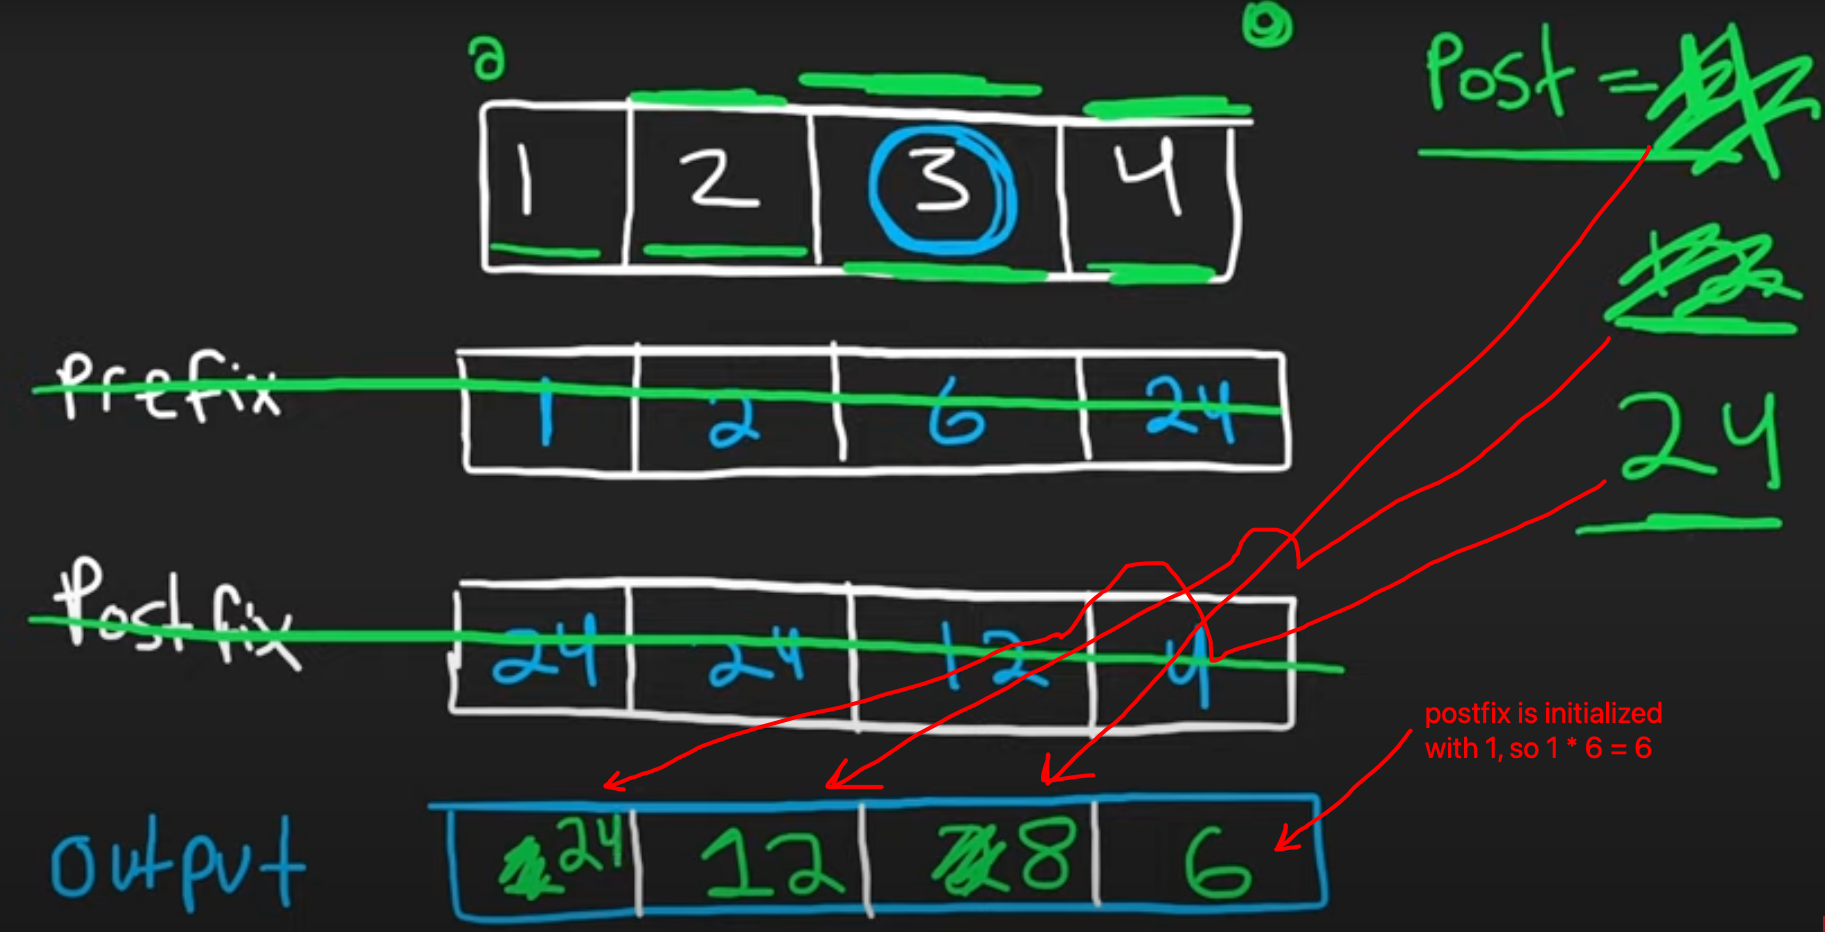 a
o
Post =
1 2 3 4
24
Prefix 1 2 6 24
Postfix 24 24 12 4
postfix is initialized
with 1, so 1 * 6 = 6
output 24 12 8 6